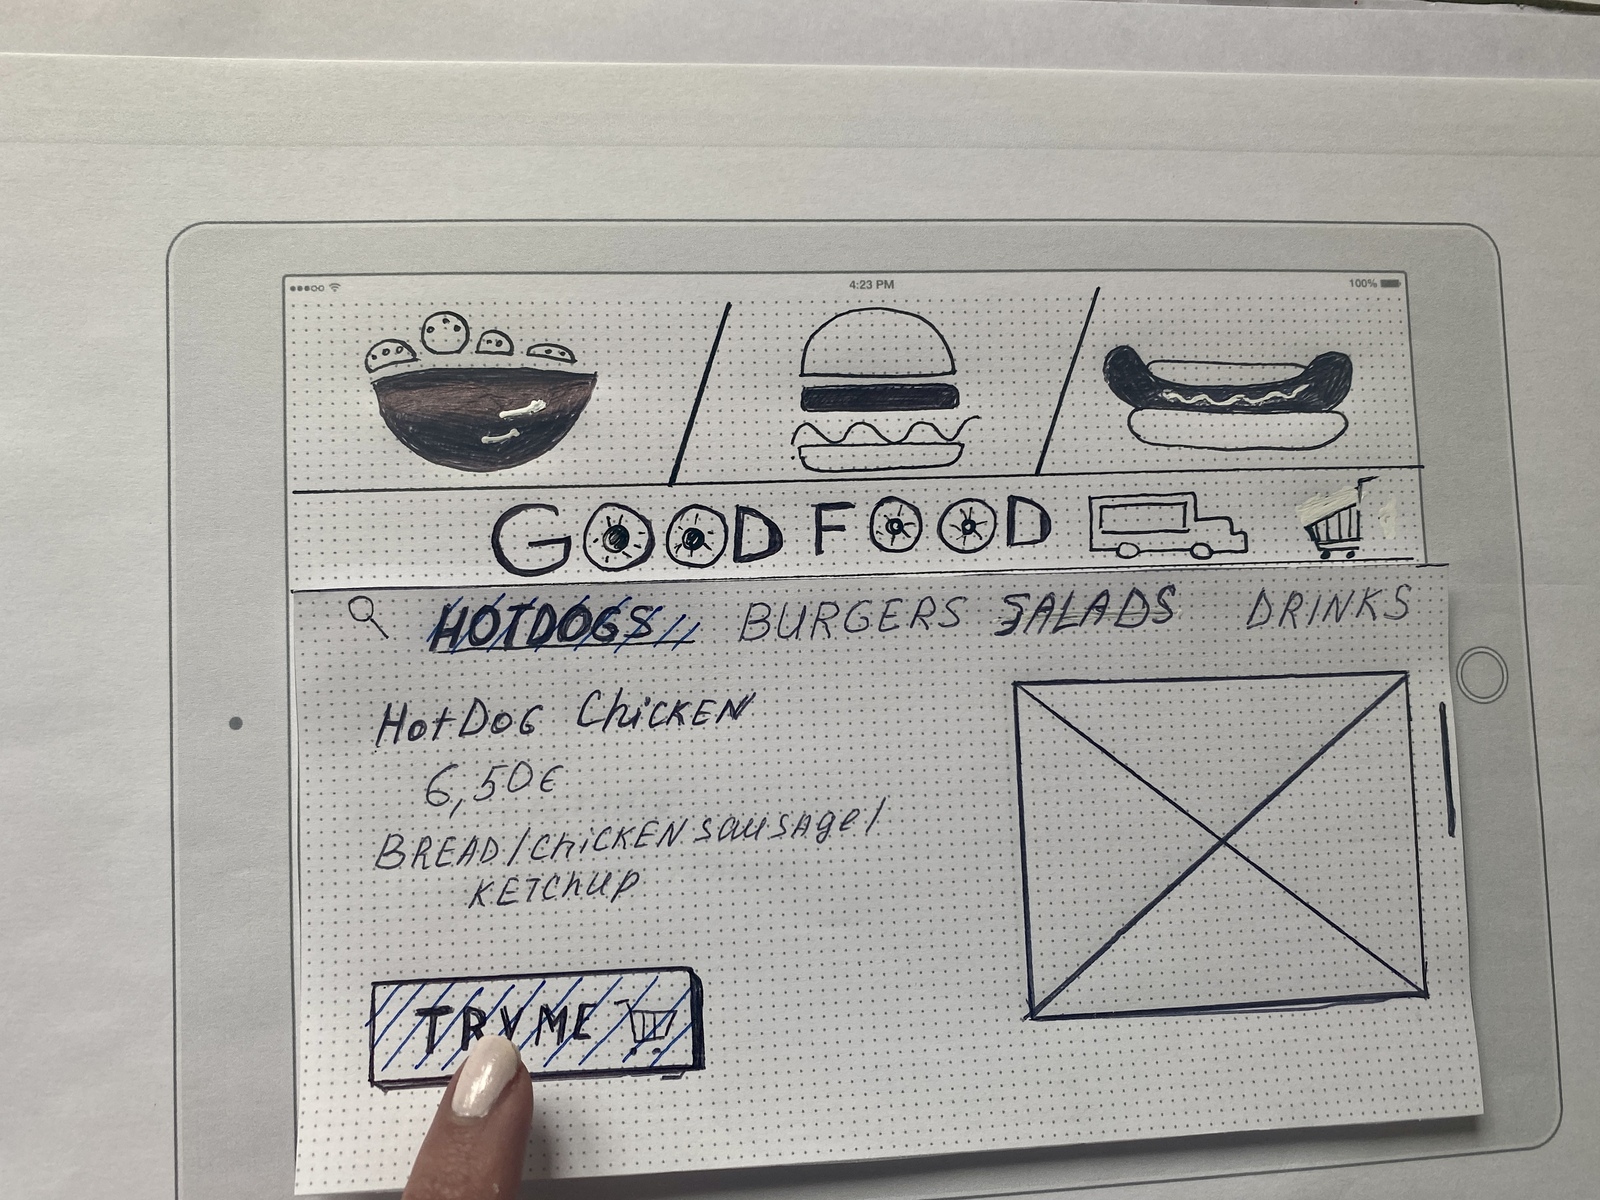 4:23 PM
100%
GOOD FOOD
HOTDOGS BURGERS SALADS DRINKS
HotDog ChiCKEN
6,50€
BREAD/ChiCKEN sausage/
KETChup
TRY ME